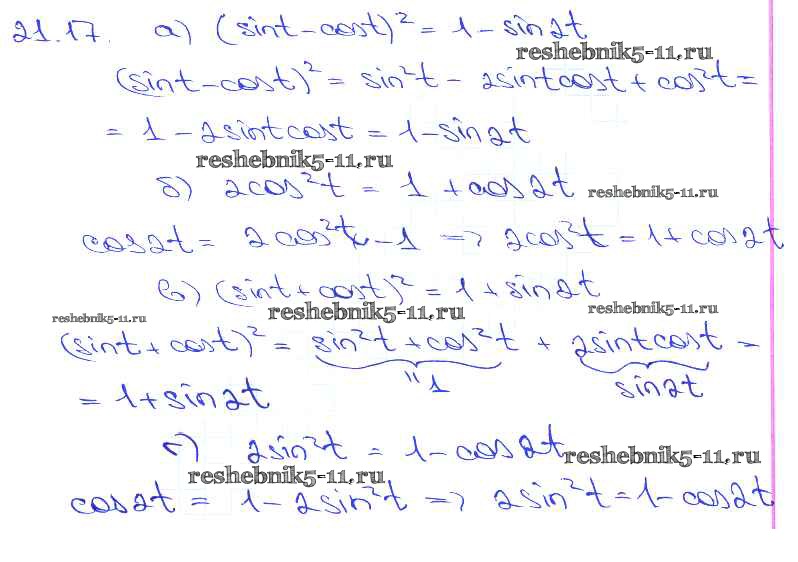 21.17. а) (sint - cost)² = 1 - sin2t
reshebnik5-11.ru
(sint - cost)² = sin²t - 2sintcost + cos²t =
= 1 - 2sintcost = 1 - sin2t
reshebnik5-11.ru
б) 2cos²t = 1 + cos2t reshebnik5-11.ru
cos2t = 2cos²t - 1 => 2cos²t = 1 + cos2t
в) (sint + cost)² = 1 + sin2t
reshebnik5-11.ru reshebnik5-11.ru reshebnik5-11.ru
(sint + cost)² = sin²t + cos²t + 2sintcost =
"1 sin2t
= 1 + sin2t
г) 2sin²t = 1 - cos2t reshebnik5-11.ru
reshebnik5-11.ru
cos2t = 1 - 2sin²t => 2sin²t = 1 - cos2t